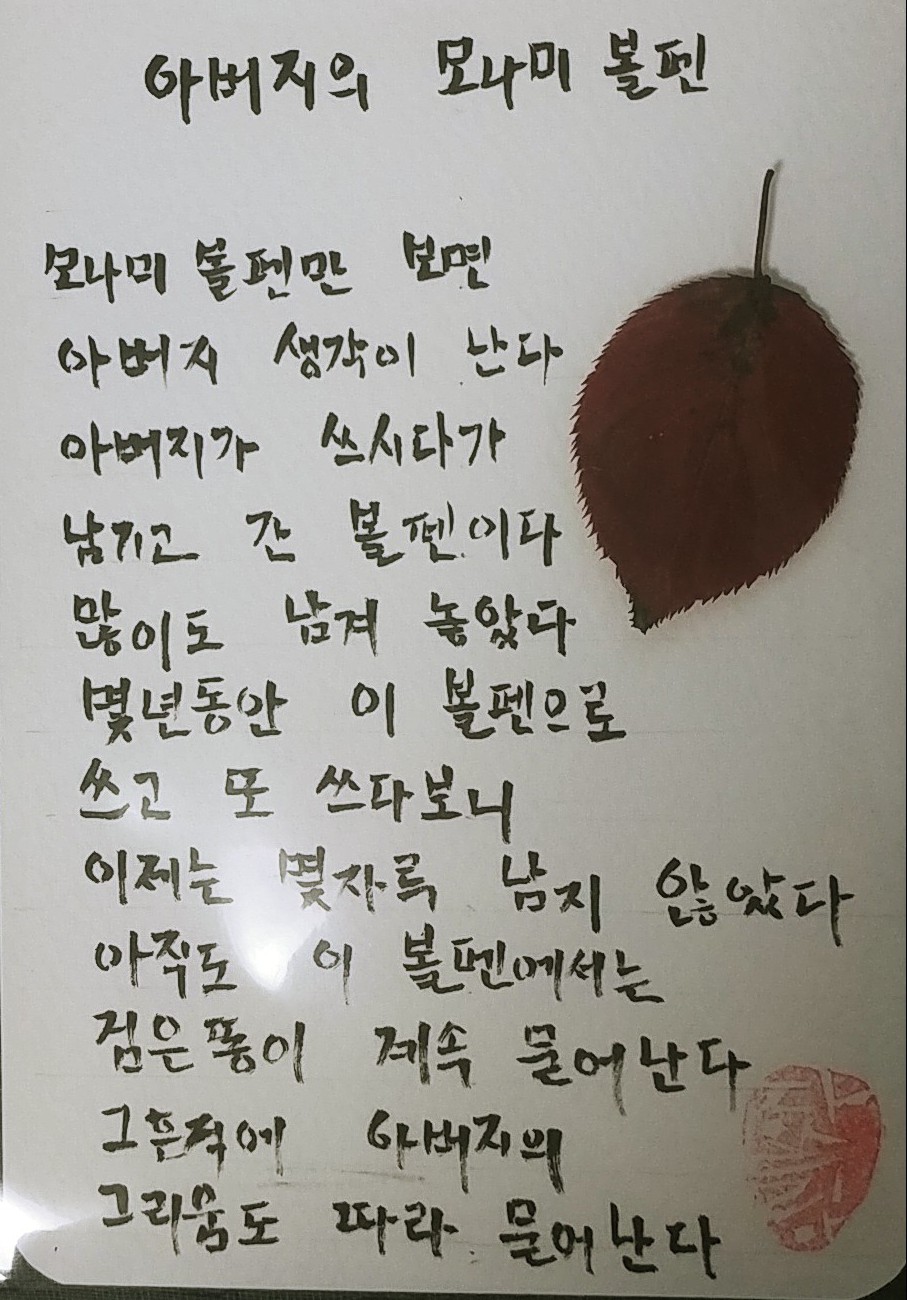 아버지의 모나미 볼펜
모나미 볼펜만 보면
아버지 생각이 난다
아버지가 쓰시다가
남기고 간 볼펜이다
많이도 남겨 놓았다
몇년동안 이 볼펜으로
쓰고 또 쓰다보니
이제는 몇자루 남지 않았다
아직도 이 볼펜에서는
검은 똥이 계속 묻어난다
그흔적에 아버지의
그리움도 따라 묻어난다